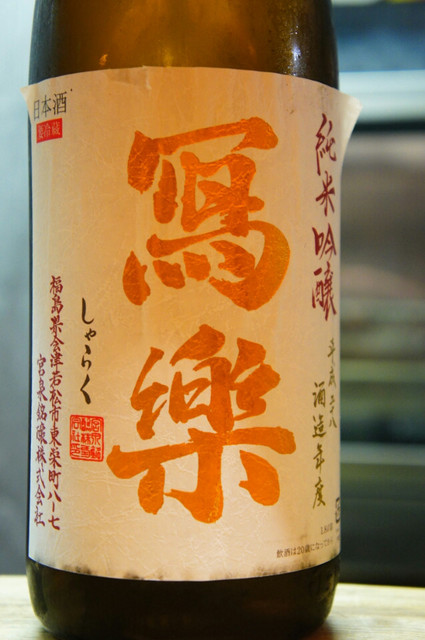 日本酒
要冷蔵
純米吟醸
平成二八
酒造年度
寫樂
しゃらく
福島県会津若松市東栄町八ー七
宮泉銘醸株式会社
飲酒は20歳になってから